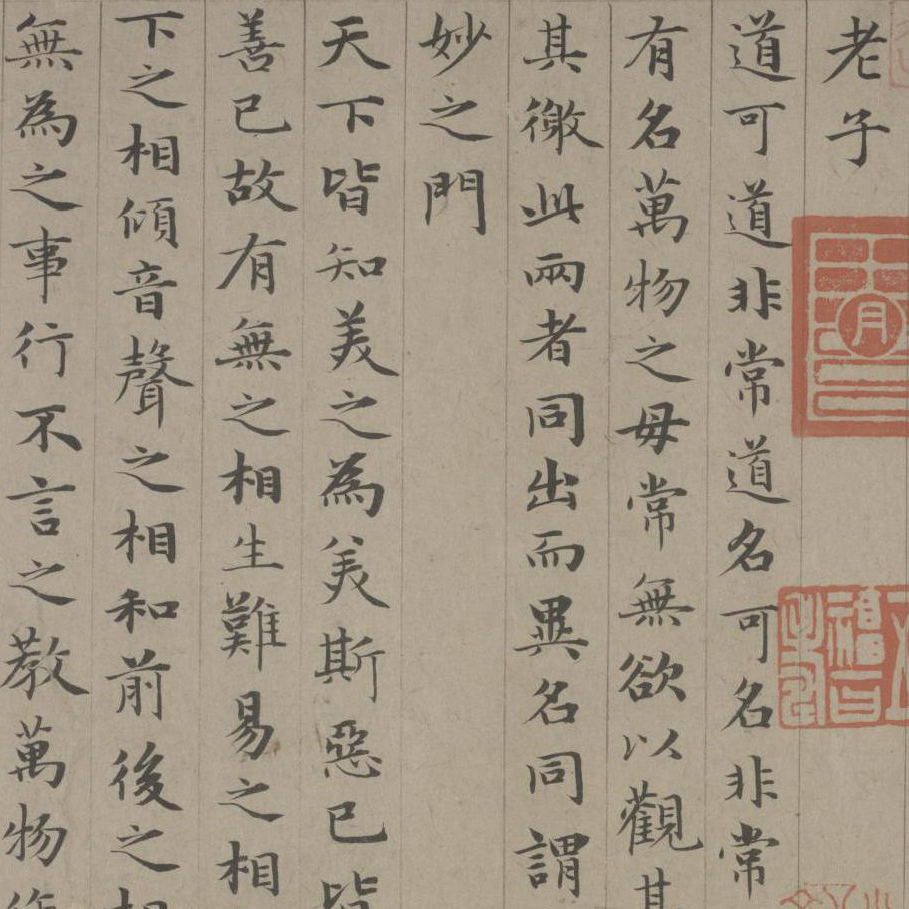 老子
道可道非常道名可名非常
有名萬物之母常無欲以觀其
其徼此兩者同出而異名同謂
妙之門
天下皆知美之為美斯惡已皆
善已故有無之相生難易之相
下之相傾音聲之相和前後之相
無為之事行不言之教萬物作